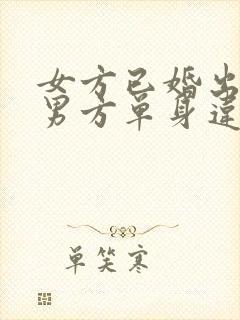 女方已婚出
男方单身违
单笑寒